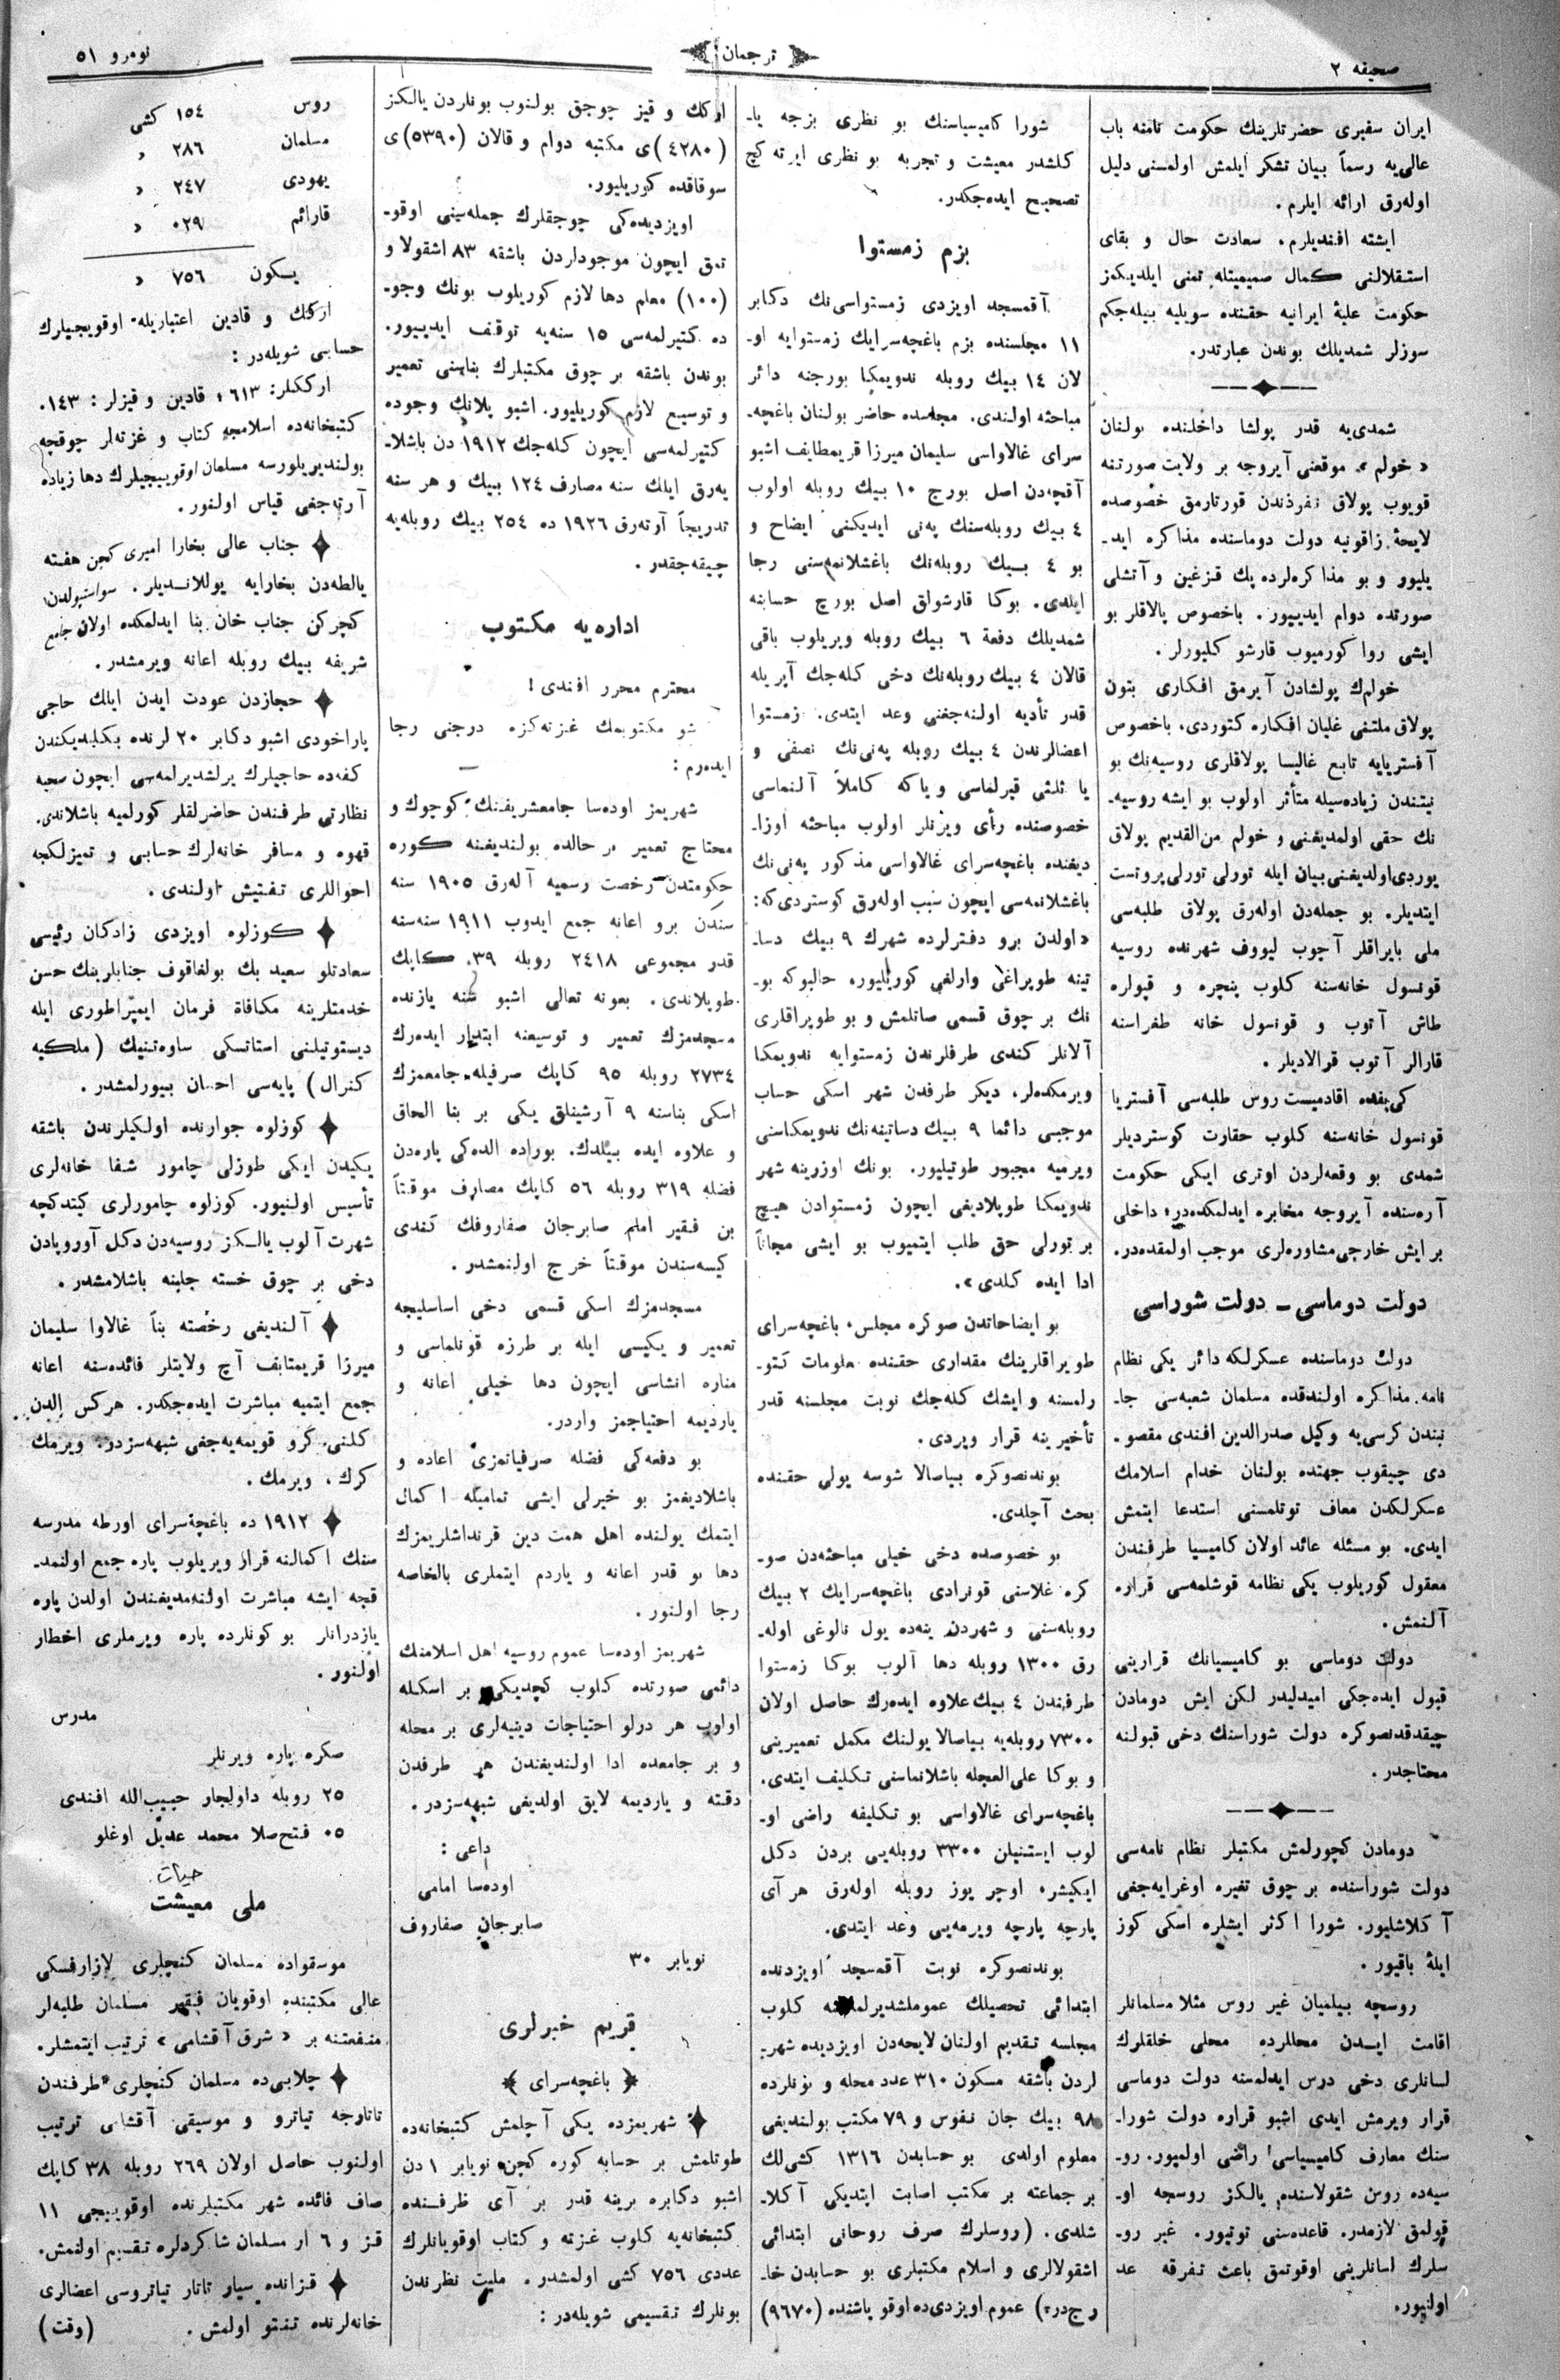 صحیفه ۲
ترجمان
نومرو ۵۱
ایران سفیری حضرتلرینك حکومت نامنه باب
عالی‌یه رسماً بیان تشکر ایلمش اولمسنی دلیل
اوله‌رق ارائه ایلرم.
ایشته افندیلرم. سعادت حال و بقای
استقلالنی کمال صمیمیتله تمنی ایلدیکمز
حکومت علیهٔ ایرانیه حقنده سویلیه بیله‌جکم
سوزلر شمدیلك بوندن عبارتدر.
شمدی‌یه قدر پولشا داخلنده بولنان
«خولم» موقعنی آیروجه بر ولایت صورتنه
قویوب پولاق نفرذندن قورتارمق خصوصده
لایحهٔ زاقونیه دولت دوماسنده مذاکره اید-
یلیور و بو مذاکره‌لرده پك قزغین و آتشلی
صورتده دوام ایدییور. باخصوص پالاقلر بو
ایشی روا کورمیوب قارشو کلیورلر.
خولمك پولشادن آیرمق افکاری بتون
پولاق ملتنی غلیان افکاره کتوردی. باخصوص
آفستریایه تابع غالیسا پولاقلری روسیه‌نك بو
نیتندن زیاده‌سیله متأثر اولوب بو ایشه روسیه-
نك حقی اولمدیغنی و خولم من‌القدیم پولاق
یوردی اولدیغنی بیان ایله تورلی تورلی پروتست
ایتدیلر. بو جمله‌دن اوله‌رق پولاق طلبه‌سی
ملی بایراقلر آچوب لیووف شهرنده روسیه
قونسول خانه‌سنه کلوب پنچره و قپولره
طاش آتوب و قونسول خانه طغراسنه
قارالر آتوب قرالادیلر.
کی‌یفده اقادمیست روس طلبه‌سی آفستریا
قونسول خانه‌سنه کلوب حقارت کوستردیلر
شمدی بو وقعه‌لردن اوتری ایکی حکومت
آره‌سنده آیروجه مخابره ایدلمکده‌در؛ داخلی
بر ایش خارجی مشاوره‌لری موجب اولمقده‌در.
دولت دوماسی - دولت شوراسی
دولت دوماسنده عسکرلکه دائر یکی نظام
نامه مذاکره اولندقده مسلمان شعبه‌سی جا-
نبندن کرسی‌یه وکیل صدرالدین افندی مقصو-
دی چیقوب جهتده بولنان خدام اسلامك
عسکرلکدن معاف توتلمسنی استدعا ایتمش
ایدی. بو مسئله عائد اولان کامیسیا طرفندن
معقول کوریلوب یکی نظامه قوشلمه‌سی قراره
آلنمش.
دولت دوماسی بو کامیسیانك قرارینی
قبول ایده‌جکی امیدلیدر لکن ایش دومادن
چیقدقدنصوکره دولت شوراسنك دخی قبولنه
محتاجدر.
دومادن کچورلمش مکتبلر نظام نامه‌سی
دولت شوراسنده بر چوق تغیره اوغرایه‌جغی
آکلاشلیور. شورا اکثر ایشلره اسکی کوز
ایله باقیور.
روسچه بیلمیان غیر روس مثلا مسلمانلر
اقامت ایدن محللرده محلی خلقلرك
لسانلری دخی درس ایدلمسنه دولت دوماسی
قرار ویرمش ایدی اشبو قراره دولت شورا-
سنك معارف کامیسیاسی راضی اولمیور. رو-
سیه‌ده روس شقولاسنده یالکز روسچه او-
قولمق لازمدر. قاعده‌سنی توتیور. غیر رو-
سلرك لسانلرینی اوقوتمق باعث تفرقه عد
اولنیور.
شورا کامیسیاسنك بو نظری بزجه یا-
کلشدر معیشت و تجربه بو نظری ایرته کچ
تصحیح ایده‌جکدر.
بزم زمستوا
آقمسجد اویزدی زمستواسی‌نك دکابر
۱۱ مجلسنده بزم باغچه‌سرایك زمستوایه او-
لان ۱۴ بیك روبله ندویمکا بورجنه دائر
مباحثه اولندی. مجلسده حاضر بولنان باغچه-
سرای غالاواسی سلیمان میرزا قریمطایف اشبو
آقچه‌دن اصل بورج ۱۰ بیك روبله اولوب
۴ بیك روبله‌سنك په‌نی ایدیکنی ایضاح و
بو ۴ بیك روبله‌نك باغشلانمه‌سنی رجا
ایلدی. بوکا قارشولق اصل بورچ حسابنه
شمدیلك دفعة ۶ بیك روبله ویریلوب باقی
قالان ۴ بیك روبله‌نك دخی کله‌جك آپریله
قدر تأدیه اولنه‌جغنی وعد ایتدی. زمستوا
اعضالرندن ۴ بیك روبله په‌نی‌نك نصفی و
یا ثلثی قیرلماسی و یاکه کاملاً آلنماسی
خصوصنده رأی ویرنلر اولوب مباحثه اوزا-
دیغنده باغچه‌سرای غالاواسی مذکور په‌نی‌نك
باغشلانمه‌سی ایچون سبب اوله‌رق کوستردی‌که:
«اولدن برو دفترلرده شهرك ۹ بیك دسا-
تینه طوپراغی وارلغی کوریلیور. حالبوکه بو-
نك بر چوق قسمی صاتلمش و بو طوپراقلری
آلانلر کندی طرفلرندن زمستوایه ندویمکا
ویرمکده‌لر، دیکر طرفدن شهر اسکی حساب
موجبی دائما ۹ بیك دساتینه‌نك ندویمکاسنی
ویرمیه مجبور طوتیلیور. بونك اوزرینه شهر
ندویمکا طوپلادیغی ایچون زمستوادن هیچ
بر تورلی حق طلب ایتمیوب بو ایشی مجاناً
ادا ایده کلدی».
بو ایضاحاتدن صوکره مجلس باغچه‌سرای
طوپراقلرینك مقداری حقنده معلومات کتو-
رلمسنه و ایشك کله‌جك نوبت مجلسنه قدر
تأخیرینه قرار ویردی.
بوندنصوکره بیاصالا شوسه یولی حقنده
بحث آچلدی.
بو خصوصده دخی خیلی مباحثه‌دن صو-
کره غلاسنی قونرادی باغچه‌سرایك ۲ بیك
روبله‌سنی و شهردن ینه‌ده یول نالوغی اوله-
رق ۱۳۰۰ روبله دها آلوب بوکا زمستوا
طرفندن ۴ بیك علاوه ایده‌رك حاصل اولان
۷۳۰۰ روبله‌یه بیاصالا یولنك مکمل تعمیرینی
و بوکا علی‌العجله باشلانماسنی تکلیف ایتدی.
باغچه‌سرای غالاواسی بو تکلیفه راضی او-
لوب ایستنیلن ۳۳۰۰ روبله‌یی بردن دکل
ایکیشر اوچر یوز روبله اوله‌رق هر آی
پارچه پارچه ویرمه‌یی وعد ایتدی.
بوندنصوکره نوبت آقمسجد اویزدنده
ابتدائی تحصیلك عموملشدیرلمه‌سنه کلوب
مجلسه تقدیم اولنان لایحه‌دن اویزدیده شهر-
لردن باشقه مسکون ۳۱۰ عدد محله و بونلرده
۹۸ بیك جان نفوس و ۷۹ مکتب بولندیغی
معلوم اولدی بو حسابدن ۱۳۱۶ کشی‌لك
بر جماعته بر مکتب اصابت ایتدیکی آکلا-
شلدی. (روسلرك صرف روحانی ابتدائی
اشقولالری و اسلام مکتبلری بو حسابدن خا-
رجدر) عموم اویزدی‌ده اوقو یاشنده (۹۶۷۰)
ارکك و قیز چوجق بولنوب بونلردن یالکز
(۴۲۸۰)ی مکتبه دوام و قالان (۵۳۹۰)ی
سوقاقده کوریلیور.
اویزدیده‌کی چوجقلرك جمله‌سینی اوقو-
تمق ایچون موجودلردن باشقه ۸۳ اشقولا و
(۱۰۰) معلم دها لازم کوریلوب بونك وجو-
ده کتیرلمه‌سی ۱۵ سنه‌یه توقف ایدییور.
بوندن باشقه بر چوق مکتبلرك بناسنی تعمیر
و توسیع لازم کوریلیور. اشبو پلانك وجوده
کتیرلمه‌سی ایچون کله‌جك ۱۹۱۲ دن باشلا-
یه‌رق ایلك سنه مصارف ۱۲۴ بیك و هر سنه
تدریجاً آوته‌رق ۱۹۲۶ ده ۲۵۴ بیك روبله‌یه
چیقه‌جقدر.
اداره‌یه مکتوب
محترم محرر افندی!
شو مکتوبمك غزته‌کزه درجنی رجا
ایده‌رم:
شهریمز اوده‌سا جامعشریفنك کوچوك و
محتاج تعمیر بر حالده بولندیغنه کوره
حکومتدن رخصت رسمیه آله‌رق ۱۹۰۵ سنه
سندن برو اعانه جمع ایدوب ۱۹۱۱ سنه‌سنه
قدر مجموعی ۲۴۱۸ روبله ۳۹ کاپك
طوپلاندی. بعونه تعالی اشبو سنه یازنده
مسجدمزك تعمیر و توسیعنه ابتدار ایده‌رك
۲۷۳۴ روبله ۹۵ کاپك صرفیله جامعمزك
اسکی بناسنه ۹ آرشینلق یکی بر بنا الحاق
و علاوه ایده بیلدك. بوراده الده‌کی پاره‌دن
فضله ۳۱۹ روبله ۵۶ کاپك مصارف موقتاً
بن فقیر امام صابرجان صفاروفك کندی
کیسه‌سندن موقتاً خرج اولنمشدر.
مسجدمزك اسکی قسمی دخی اساسلیجه
تعمیر و یکیسی ایله بر طرزه قونلماسی و
مناره انشاسی ایچون دها خیلی اعانه و
یاردیمه احتیاجمز واردر.
بو دفعه‌کی فضله صرفیاتمزی اعاده و
باشلادیغمز بو خیرلی ایشی تمامیله اکمال
ایتمك یولنده اهل همت دین قرنداشلریمزك
دها بو قدر اعانه و یاردم ایتملری بالخاصه
رجا اولنور.
شهریمز اوده‌سا عموم روسیه اهل اسلامنك
دائمی صورتده کلوب کچدیکی بر اسکله
اولوب هر درلو احتیاجات دینیه‌لری بر محله
و بر جامعده ادا اولندیغندن هر طرفدن
دقته و یاردیمه لایق اولدیغی شبهه‌سزدر.
داعی:
اوده‌سا امامی
صابرجان صفاروف
نویابر ۳۰
قریم خبرلری
﴿ باغچه‌سرای ﴾
شهریمزده یکی آچلمش کتبخانه‌ده
طوتلمش بر حسابه کوره کچن نویابر ۱ دن
اشبو دکابره برینه قدر بر آی ظرفنده
کتبخانه‌یه کلوب غزته و کتاب اوقویانلرك
عددی ۷۵۶ کشی اولمشدر. ملیت نظرندن
بونلرك تقسیمی شویله‌در:
روس ۱۵۴ کشی
مسلمان ۲۸۶ «
یهودی ۲۴۷ «
قارائم ۰۲۹ «
یکون ۷۵۶ «
ارکك و قادین اعتباریله اوقویجیلرك
حسابی شویله‌در:
ارککلر: ۶۱۳، قادین و قیزلر: ۱۴۳.
کتبخانه‌ده اسلامجه کتاب و غزته‌لر چوقچه
بولندیریلورسه مسلمان اوقوییجیلرك دها زیاده
آرته‌جغی قیاس اولنور.
جناب عالی بخارا امیری کچن هفته
یالطه‌دن بخارایه یوللاندیلر. سواستپولدن
کچرکن جناب خان بنا ایدلمکده اولان جامع
شریفه بیك روبله اعانه ویرمشدر.
حجازدن عودت ایدن ایلك حاجی
پاراخودی اشبو دکابر ۲۰ لرنده بکلندیکندن
کفه‌ده حاجیلرك یرلشدیرلمه‌سی ایچون صحیه
نظارتی طرفندن حاضرلقلر کورلمیه باشلاندی.
قهوه و مسافر خانه‌لرك حسابی و تمیزلکجه
احواللری تفتیش اولندی.
کوزلوه اویزدی زادکان رئیسی
سعادتلو سعید بك بولغاقوف جنابلرینك حسن
خدمتلرینه مکافاة فرمان ایمپراطوری ایله
دیستویتیلنی استاتسکی ساوه‌تنیك (ملکیه
کنرال) پایه‌سی احسان بیورلمشدر.
کوزلوه جوارنده اولکیلرندن باشقه
یکیدن ایکی طوزلی چامور شفا خانه‌لری
تأسیس اولنیور. کوزلوه چامورلری کیتدکچه
شهرت آلوب یالکز روسیه‌دن دکل آوروپادن
دخی بر چوق خسته جلبنه باشلامشدر.
آلندیغی رخصته بناً غالاوا سلیمان
میرزا قریمتایف آچ ولایتلر فائده‌سنه اعانه
جمع ایتمیه مباشرت ایده‌جکدر. هرکس الدن
کلنی کرو قویمه‌یه‌جغی شبهه‌سزدر. ویرمك
کرك، ویرمك.
۱۹۱۲ ده باغچه‌سرای اورطه مدرسه
سنك اکمالنه قرار ویریلوب پاره جمع اولنمد-
قچه ایشه مباشرت اولنه‌مدیغندن اولدن پاره
یازدرانلر بو کونلرده پاره ویرملری اخطار
اولنور.
مدرس
صکره پاره ویرنلر
۲۵ روبله داولجار حبیب‌الله افندی
۰۵ فتح‌صلا محمد عدیل اوغلو
حیات
ملی معیشت
موسقواده مسلمان کنچلری لازارفسکی
عالی مکتبنده اوقویان فقیر مسلمان طلبه‌لر
منفعتنه بر «شرق آقشامی» ترتیب ایتمشلر.
چلابی‌ده مسلمان کنچلری طرفندن
تاتارجه تیاترو و موسیقی آقشامی ترتیب
اولنوب حاصل اولان ۲۶۹ روبله ۳۸ کاپك
صاف فائده شهر مکتبلرنده اوقوییجی ۱۱
قز و ۶ ار مسلمان شاکردلره تقسیم اولنمش.
قزانده سیار تاتار تیاتروسی اعضالری
خانه‌لرنده تفتو اولمش. (وقت)